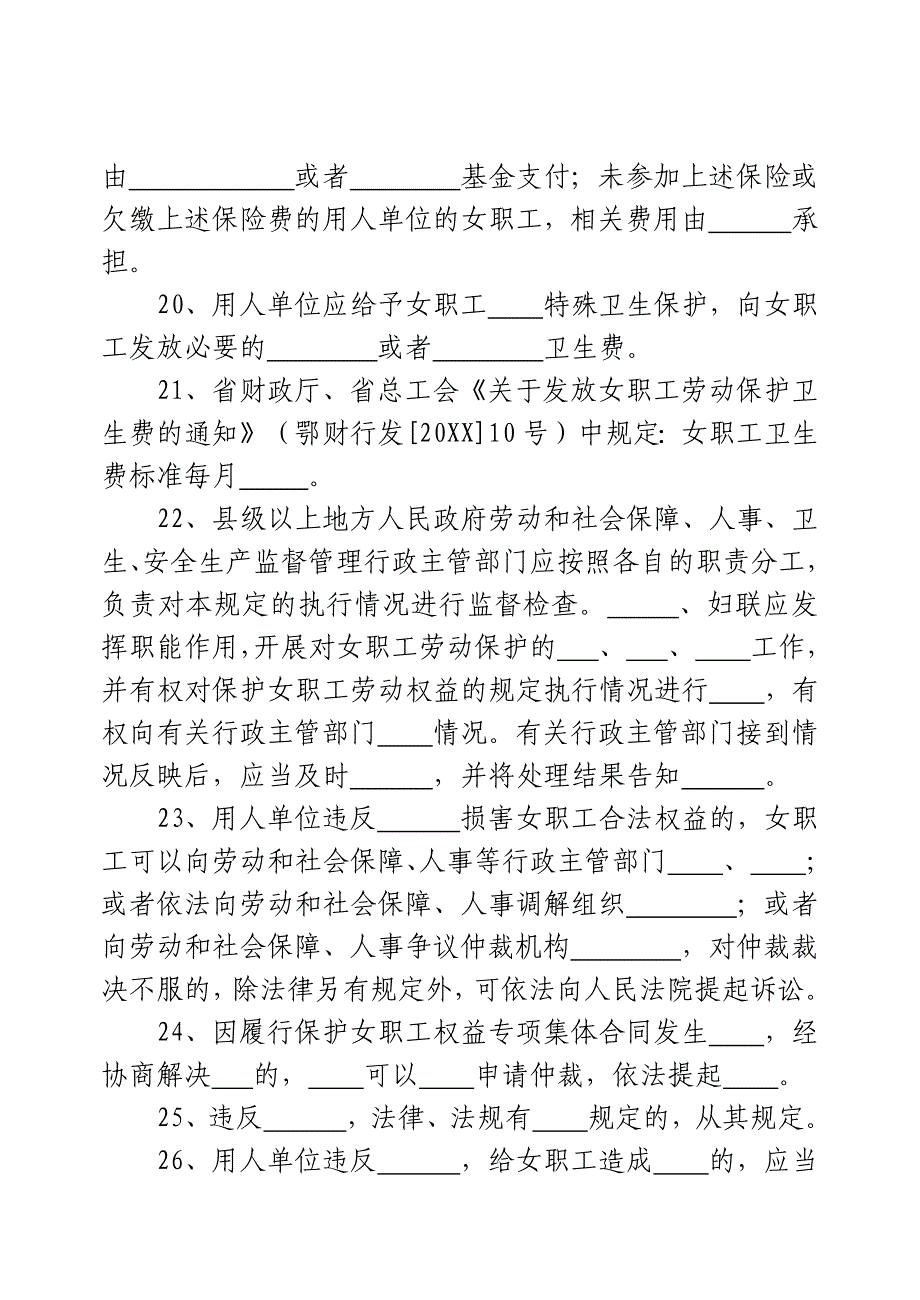 由____________或者________基金支付；未参加上述保险或
欠缴上述保险费的用人单位的女职工，相关费用由______承
担。
20、用人单位应给予女职工____特殊卫生保护，向女职
工发放必要的________或者________卫生费。
21、省财政厅、省总工会《关于发放女职工劳动保护卫
生费的通知》（鄂财行发[20XX]10号）中规定：女职工卫生
费标准每月_____。
22、县级以上地方人民政府劳动和社会保障、人事、卫
生、安全生产监督管理行政主管部门应按照各自的职责分工，
负责对本规定的执行情况进行监督检查。_____、妇联应发
挥职能作用，开展对女职工劳动保护的___、___、____工作，
并有权对保护女职工劳动权益的规定执行情况进行____，有
权向有关行政主管部门____情况。有关行政主管部门接到情
况反映后，应当及时______，并将处理结果告知______。
23、用人单位违反______损害女职工合法权益的，女职
工可以向劳动和社会保障、人事等行政主管部门____、____；
或者依法向劳动和社会保障、人事调解组织________；或者
向劳动和社会保障、人事争议仲裁机构________，对仲裁裁
决不服的，除法律另有规定外，可依法向人民法院提起诉讼。
24、因履行保护女职工权益专项集体合同发生____，经
协商解决___的，____可以____申请仲裁，依法提起____。
25、违反______，法律、法规有____规定的，从其规定。
26、用人单位违反______，给女职工造成____的，应当